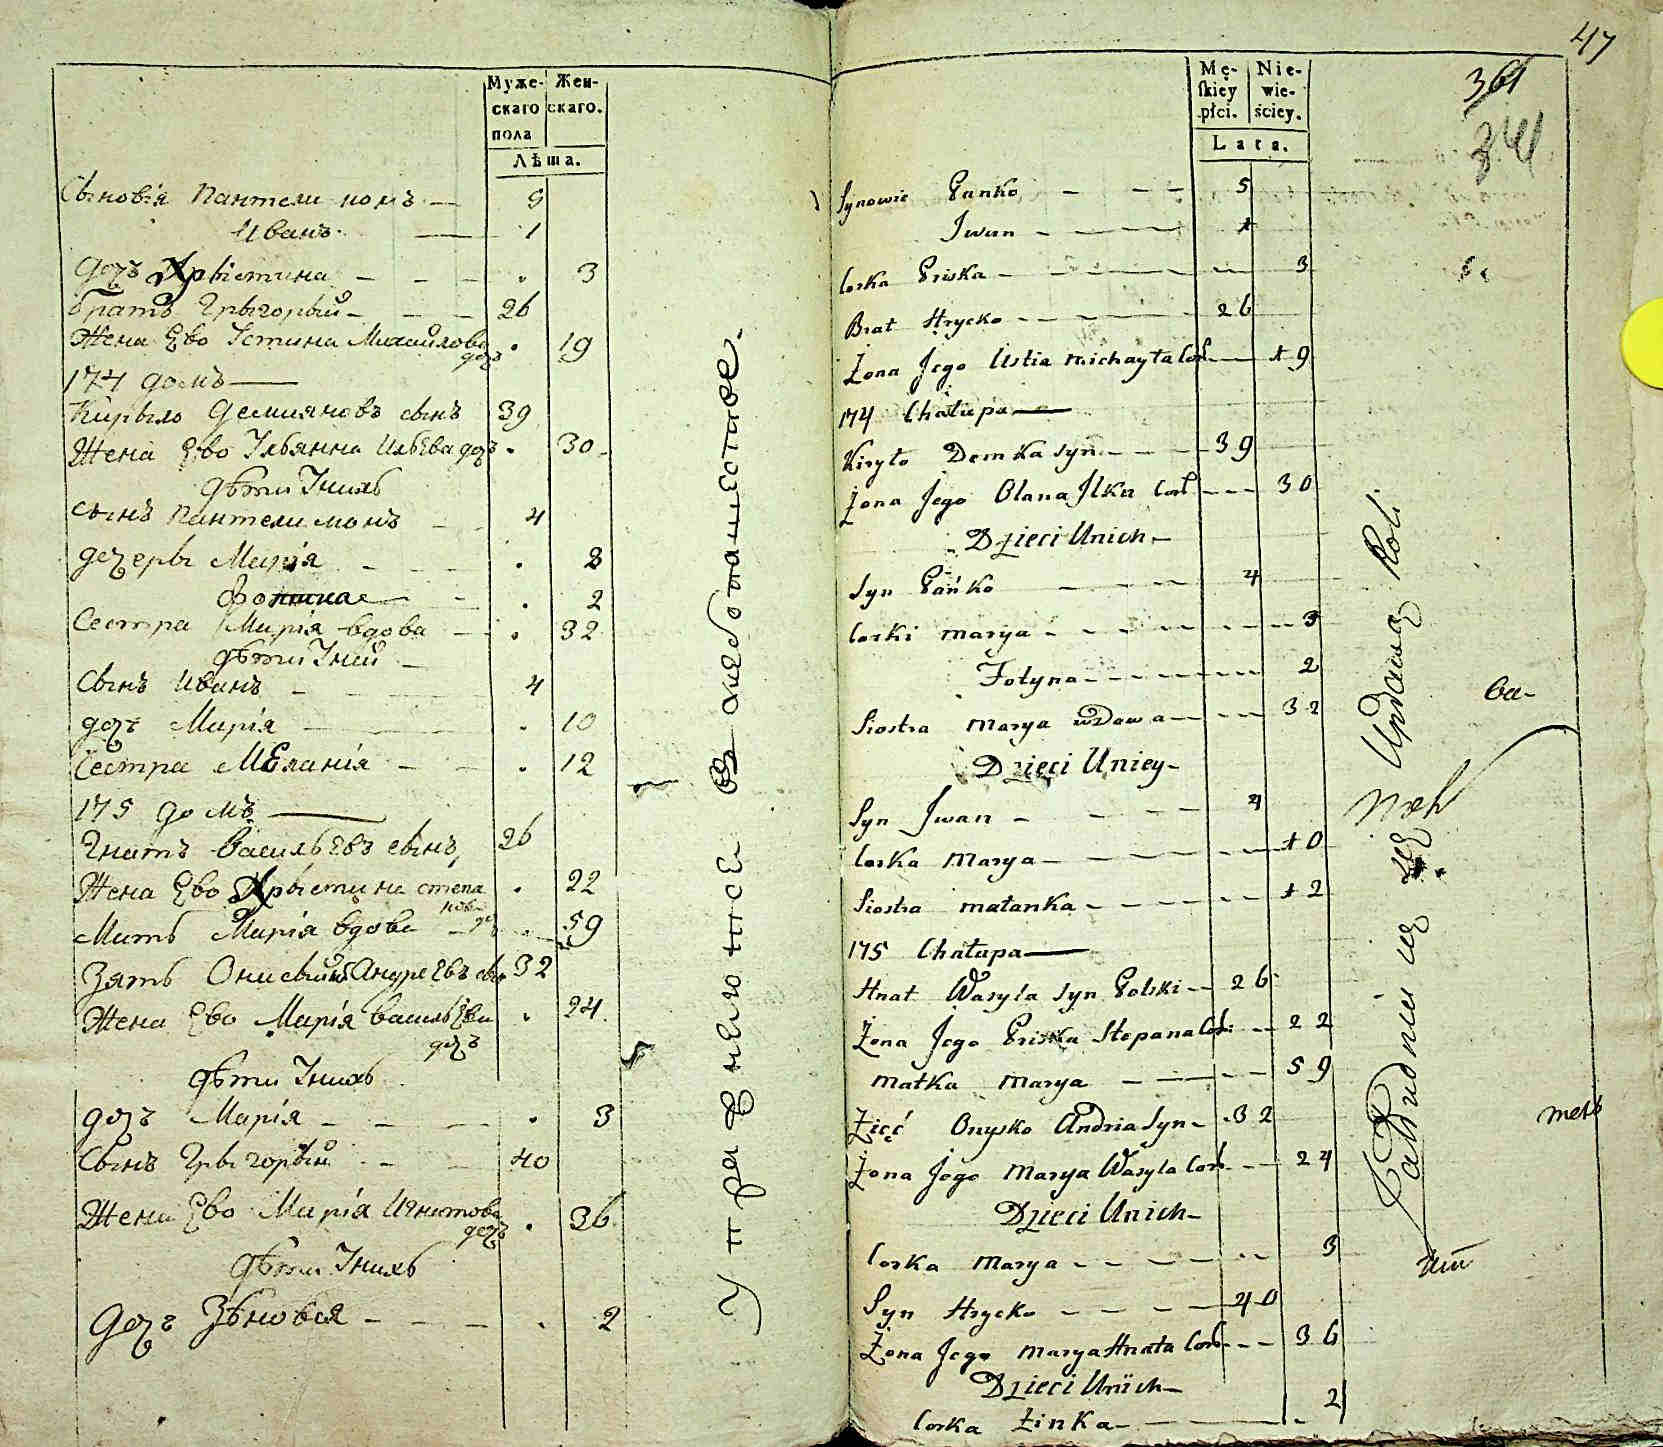 Муже-
скаго
пола
Жен-
скаго.
Лѣта.
Сыновія Пантелимонъ — 5
Иванъ — 1
дочь Хрыстина — 3
братъ Грыгорый — 26
Жена Ево Устина Михайлова дочь 19
174 домъ
Кирыло Демияновъ сынъ 39
Жена Ево Ульянна Ильева дочь 30
дѣти Унихъ
сынъ Пантелимонъ 4
дочеры Марія 8
2
Сестра Марія вдова 32
дѣти Уней
Сынъ Иванъ 4
дочь Марія 10
Сестра Меланія 12
175 домъ
Гнатъ Васильевъ сынъ 26
Жена Ево Хрыстина степанов дочь 22
Мать Марія вдова 59
Зять Андреевъ сынъ 32
Жена Ево Марія васильева дочь 24
дѣти Унихъ
дочь Марія 3
Сынъ Грыгорый 40
Жена Ево Марія Игнатова дочь 36
дѣти Унихъ
дочь Зѣновея 2
47
361
341
Mę-
skiey
płci.
Nie-
wie-
ściey.
Lata.
Synowie Panko 5
Iwan 1
Corka Priska 3
Brat Hrycko 26
Żona Jego Ustia Michayła Cor 19
174 Chałupa
Kiryło Demka Syn 39
Żona Jego Olana Ilka Cor 30
Dzieci Unich
Syn Pańko 4
Corki Marya 8
Fotyna 2
Siostra Marya wdowa 32
Dzieci Uniey
Syn Iwan 4
Corka Marya 10
Siostra Małanka 12
175 Chałupa
Hnat Wasyla Syn Polski 26
Żona Jego Priska Stepana Cor 22
Matka Marya 59
Zięć Onysko Andria Syn 32
Żona Jego Marya Wasyla Cor 24
Dzieci Unich
Corka Marya 3
Syn Hrycko 40
Żona Jego Marya Hnata Cor 36
Dzieci Unich
Corka Zinka 2